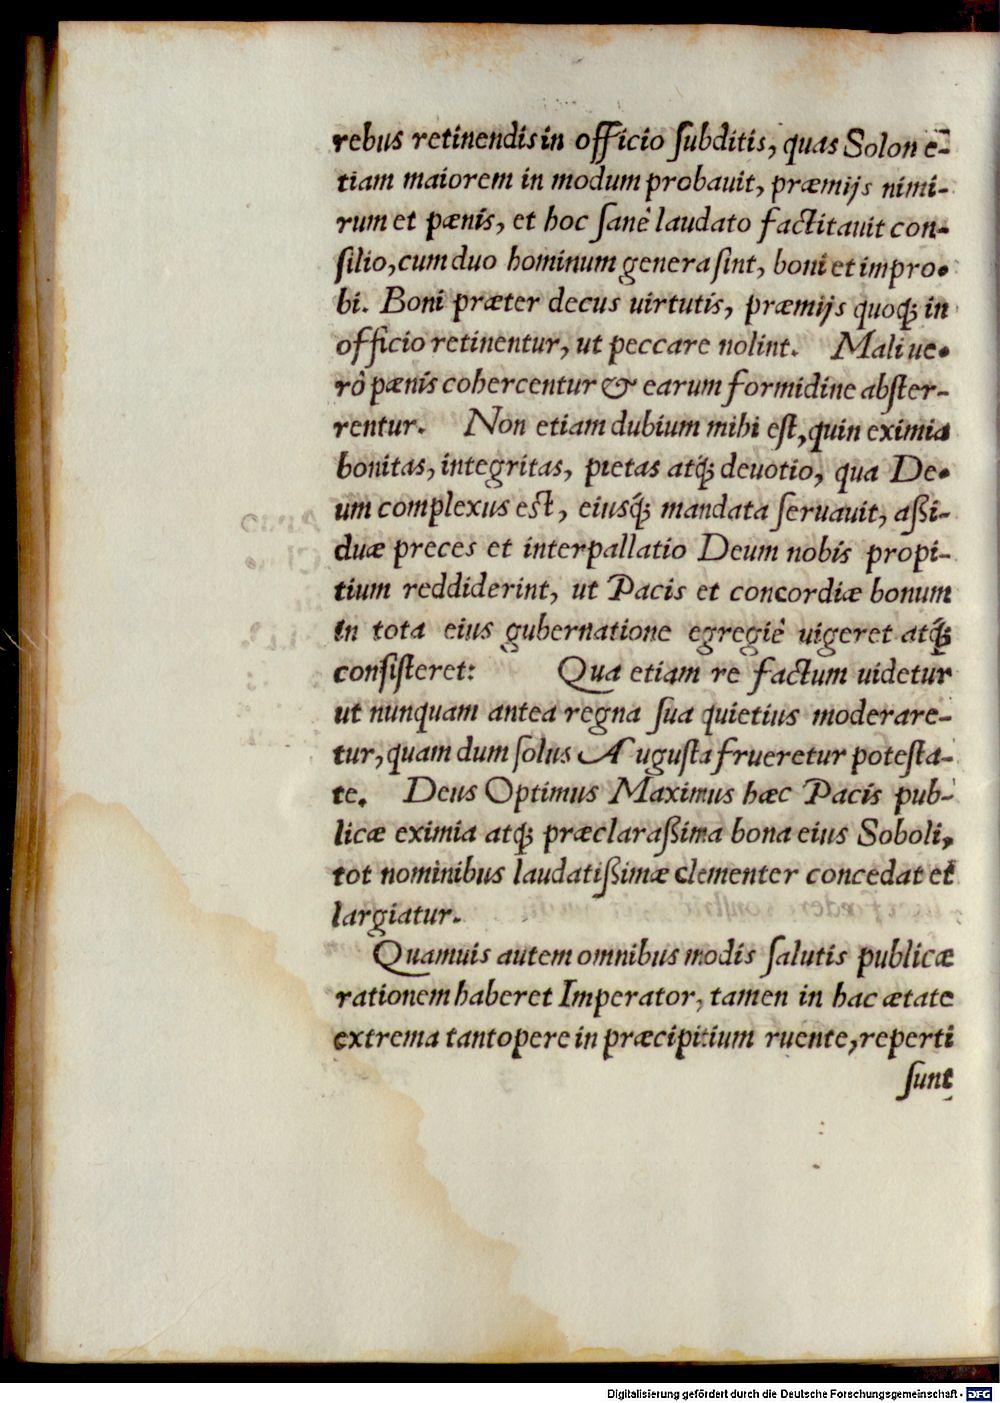 rebus retinendis in officio ſubditis, quas Solon e-
tiam maiorem in modum probauit, præmijs nimi-
rum et pænis, et hoc ſanè laudato factitauit con-
ſilio, cum duo hominum genera ſint, boni et impro-
bi. Boni præter decus uirtutis, præmijs quoq́; in
officio retinentur, ut peccare nolint. Mali ue-
rò pænis cohercentur & earum formidine abſter-
rentur. Non etiam dubium mihi eſt, quin eximia
bonitas, integritas, pietas atq́; deuotio, qua De-
um complexus eſt, eiusq́; mandata ſeruauit, aßi-
duæ preces et interpallatio Deum nobis propi-
tium reddiderint, ut Pacis et concordiæ bonum
in tota eius gubernatione egregiè uigeret atq́;
conſiſteret: Qua etiam re factum uidetur
ut nunquam antea regna ſua quietius moderare-
tur, quam dum ſolus Auguſta frueretur poteſta-
te. Deus Optimus Maximus hæc Pacis pub-
licæ eximia atq́; præclaraßima bona eius Soboli,
tot nominibus laudatißimæ clementer concedat et
largiatur.
Quamuis autem omnibus modis ſalutis publicæ
rationem haberet Imperator, tamen in hac ætate
extrema tantopere in præcipitium ruente, reperti
ſunt
Digitalisierung gefördert durch die Deutsche Forschungsgemeinschaft - DFG